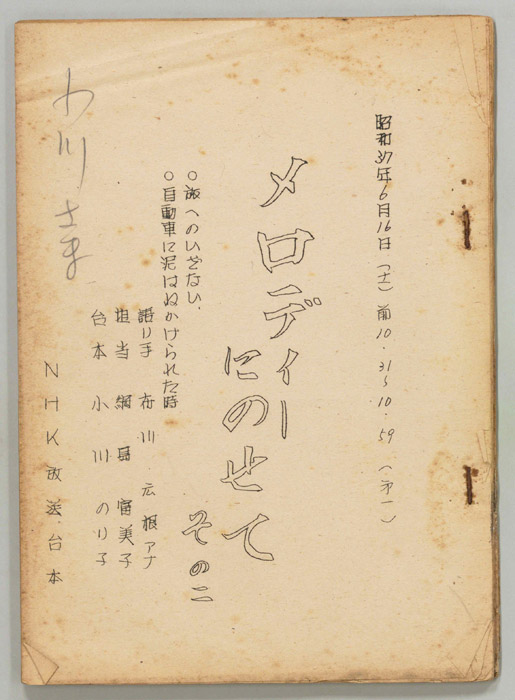 昭和37年6月16日(土)前10.31~10.59(第一)
メロディー
にのせて
その二
○旅へのいざない.
○自動車に泥はねかけられた時
語り手 布川 アナ
担当 富美子
台本 小川 のり子
NHK放送台本
川さま